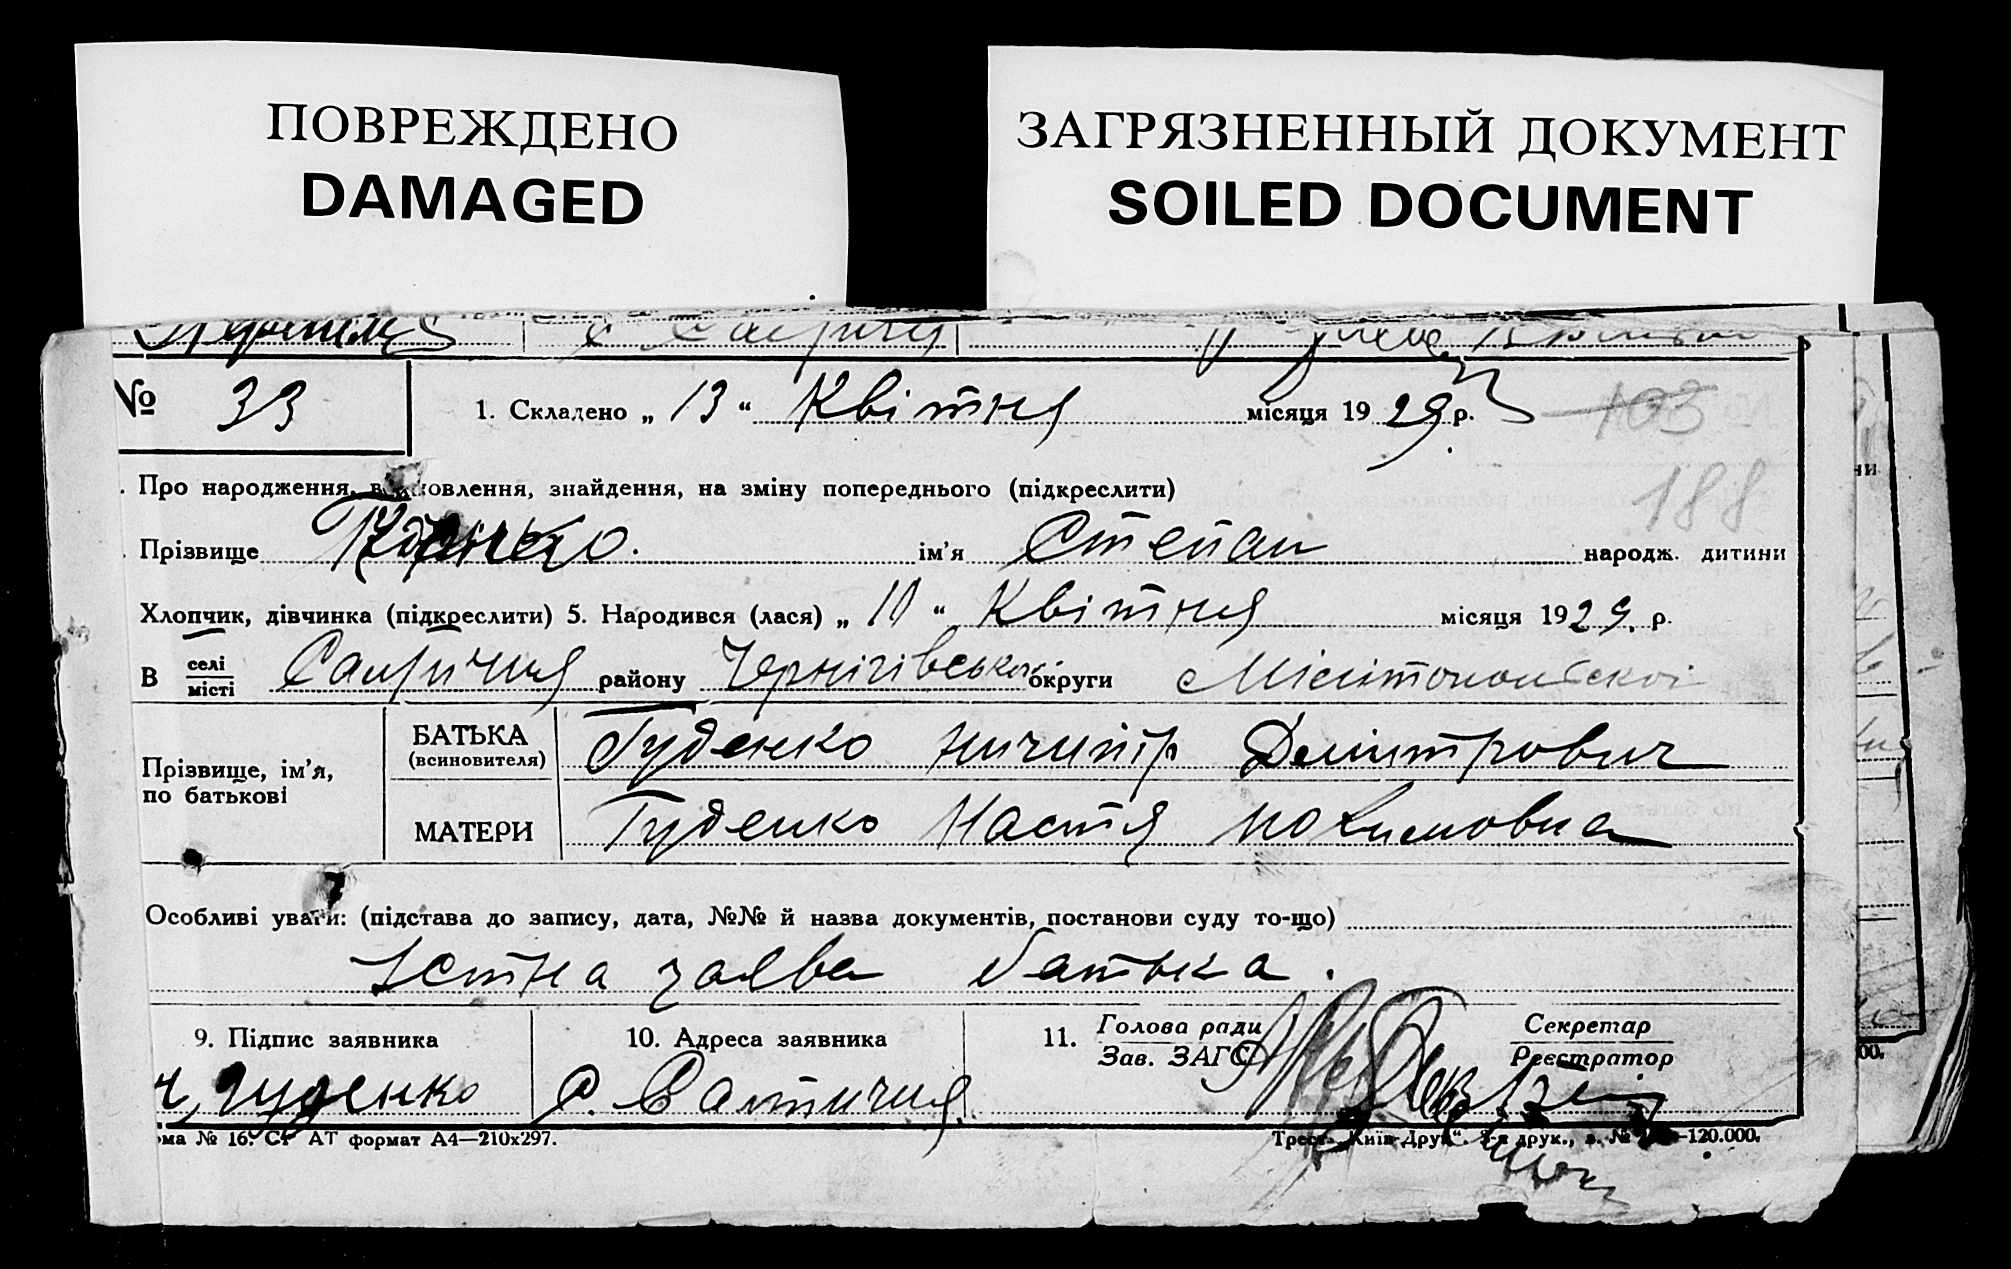 ПОВРЕЖДЕНО
DAMAGED
ЗАГРЯЗНЕННЫЙ ДОКУМЕНТ
SOILED DOCUMENT
№ 33
1. Складено „ 13 “ Квітня місяця 19 29 р.
103
188
Про народження, в новлення, знайдення, на зміну попереднього (підкреслити)
Прізвище ім'я Степан народж. дитини
Хлопчик, дівчинка (підкреслити) 5. Народився (лася) „ 10 “ Квітня місяця 19 29. р.
В селі/місті Салтичия району Чернігівської округи
Прізвище, ім'я, по батькові
БАТЬКА (всиновителя) Гуденко Ничипір Дмитрович
МАТЕРИ Гуденко Настя
Особливі уваги: (підстава до запису, дата, №№ й назва документів, постанови суду то-що)
Устна заява батька.
9. Підпис заявника
10. Адреса заявника
11. Голова ради
Зав. ЗАГС
Секретар
Реєстратор
Гуденко
с. Салтичия
ма № 16. Ст АТ формат А4—210х297.
Трест „Київ-Друк“. друк., з. № —120.000.